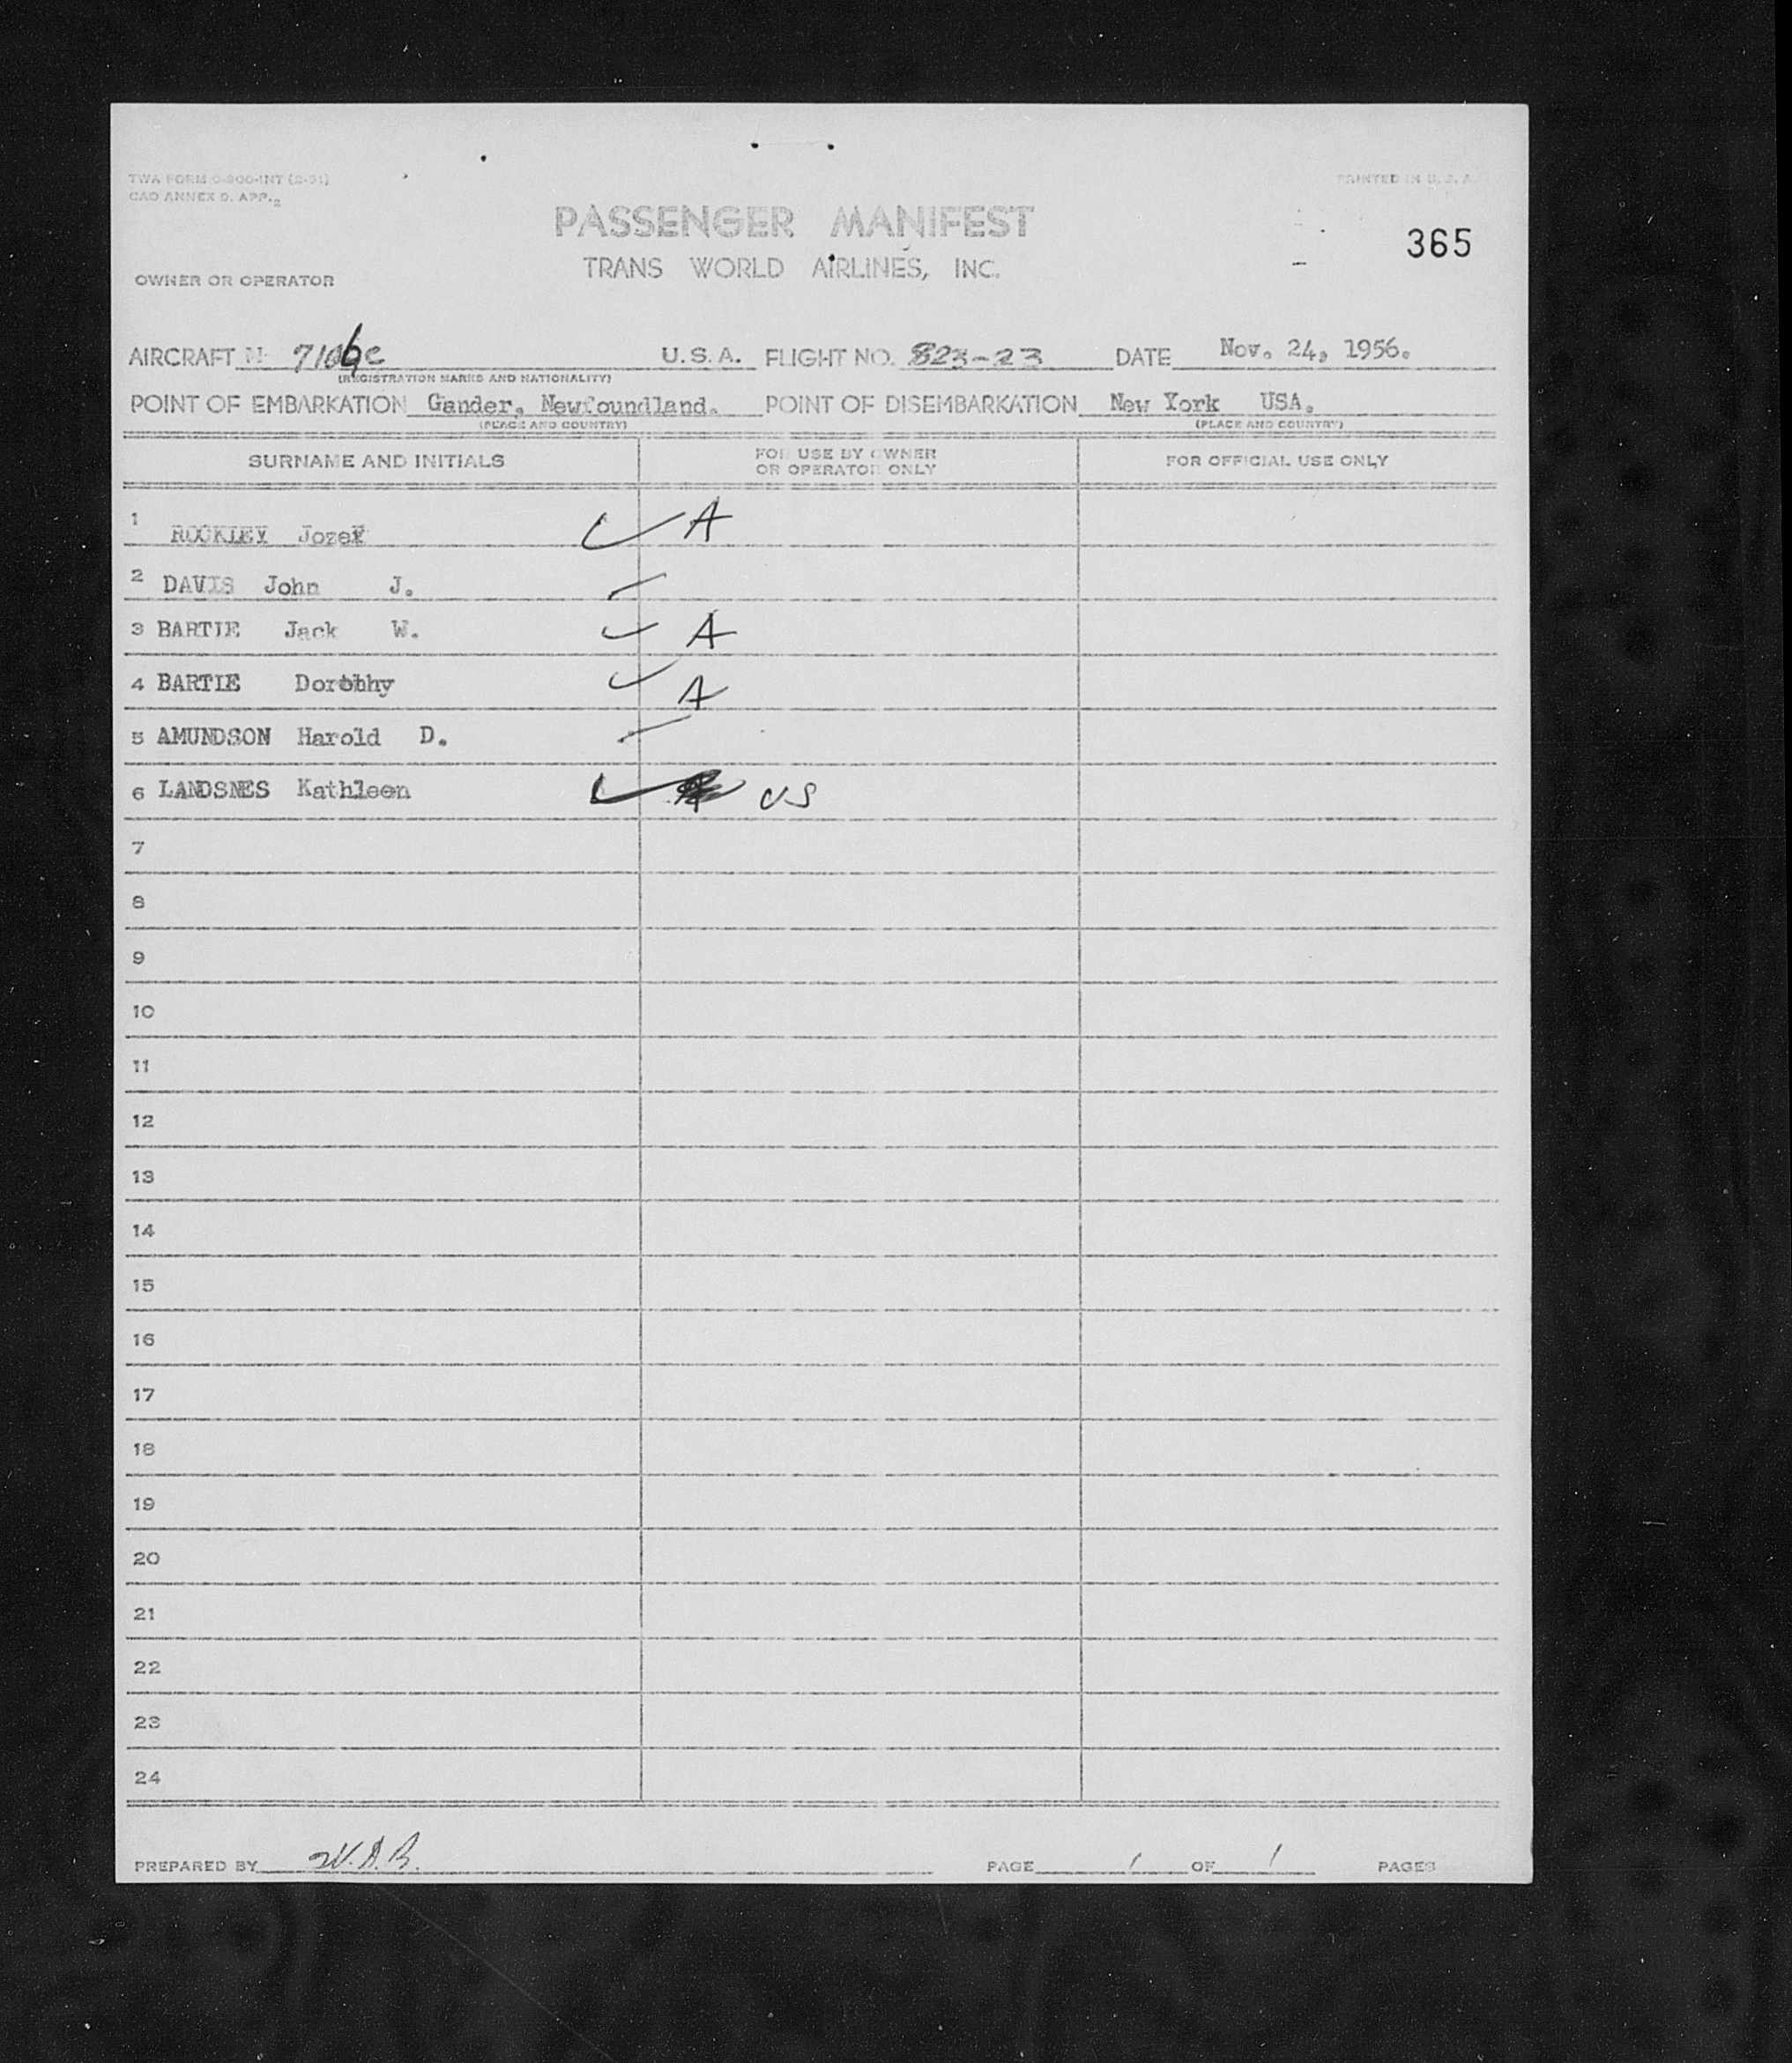 TWA FORM O-800-INT (2-51)
PRINTED IN U. S. A.
CAO ANNEX 9. APP. 2
PASSENGER MANIFEST
365
TRANS WORLD AIRLINES, INC.
OWNER OR OPERATOR
AIRCRAFT N- 7106c U.S.A. FLIGHT NO. 823-23 DATE Nov. 24, 1956.
(REGISTRATION MARKS AND NATIONALITY)
POINT OF EMBARKATION Gander, Newfoundland. POINT OF DISEMBARKATION New York USA.
(PLACE AND COUNTRY) (PLACE AND COUNTRY)
SURNAME AND INITIALS FOR USE BY OWNER OR OPERATOR ONLY FOR OFFICIAL USE ONLY
1 Jozef ✓ A
2 DAVIS John J.
3 BARTIE Jack W. ✓ A
4 BARTIE Dorothy ✓ A
5 AMUNDSON Harold D.
6 LANDSNES Kathleen ✓ US
7
8
9
10
11
12
13
14
15
16
17
18
19
20
21
22
23
24
PREPARED BY PAGE 1 OF 1 PAGES